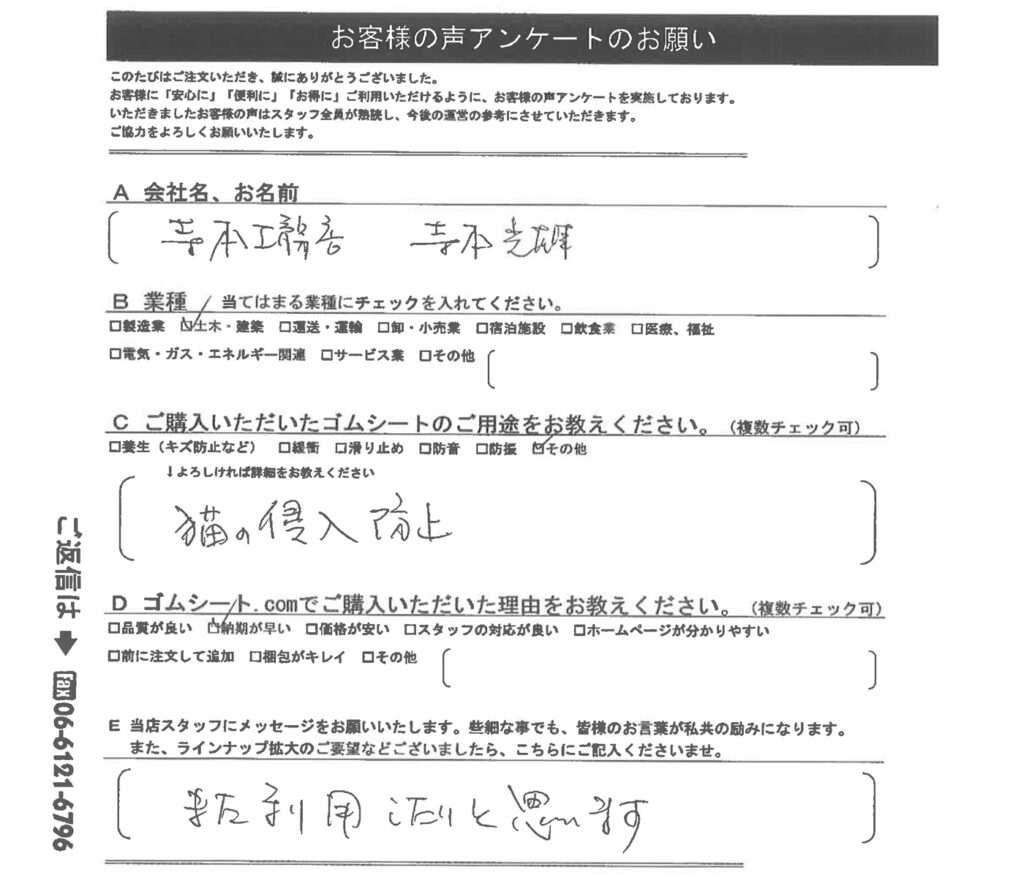 お客様の声アンケートのお願い
このたびはご注文いただき、誠にありがとうございました。
お客様に「安心に」「便利に」「お得に」ご利用いただけるように、お客様の声アンケートを実施しております。
いただきましたお客様の声はスタッフ全員が熟読し、今後の運営の参考にさせていただきます。
ご協力をよろしくお願いいたします。
A 会社名、お名前
寺本工務店 寺本光雄
B 業種 当てはまる業種にチェックを入れてください。
□製造業 ☑土木・建築 □運送・運輸 □卸・小売業 □宿泊施設 □飲食業 □医療、福祉
□電気・ガス・エネルギー関連 □サービス業 □その他
C ご購入いただいたゴムシートのご用途をお教えください。（複数チェック可）
□養生（キズ防止など） □緩衝 □滑り止め □防音 □防振 ☑その他
↓よろしければ詳細をお教えください
猫の侵入防止
D ゴムシート.comでご購入いただいた理由をお教えください。（複数チェック可）
□品質が良い ☑納期が早い □価格が安い □スタッフの対応が良い □ホームページが分かりやすい
□前に注文して追加 □梱包がキレイ □その他
E 当店スタッフにメッセージをお願いいたします。些細な事でも、皆様のお言葉が私共の励みになります。
また、ラインナップ拡大のご要望などございましたら、こちらにご記入くださいませ。
また利用したいと思います
ご返信は➡fax06-6121-6796